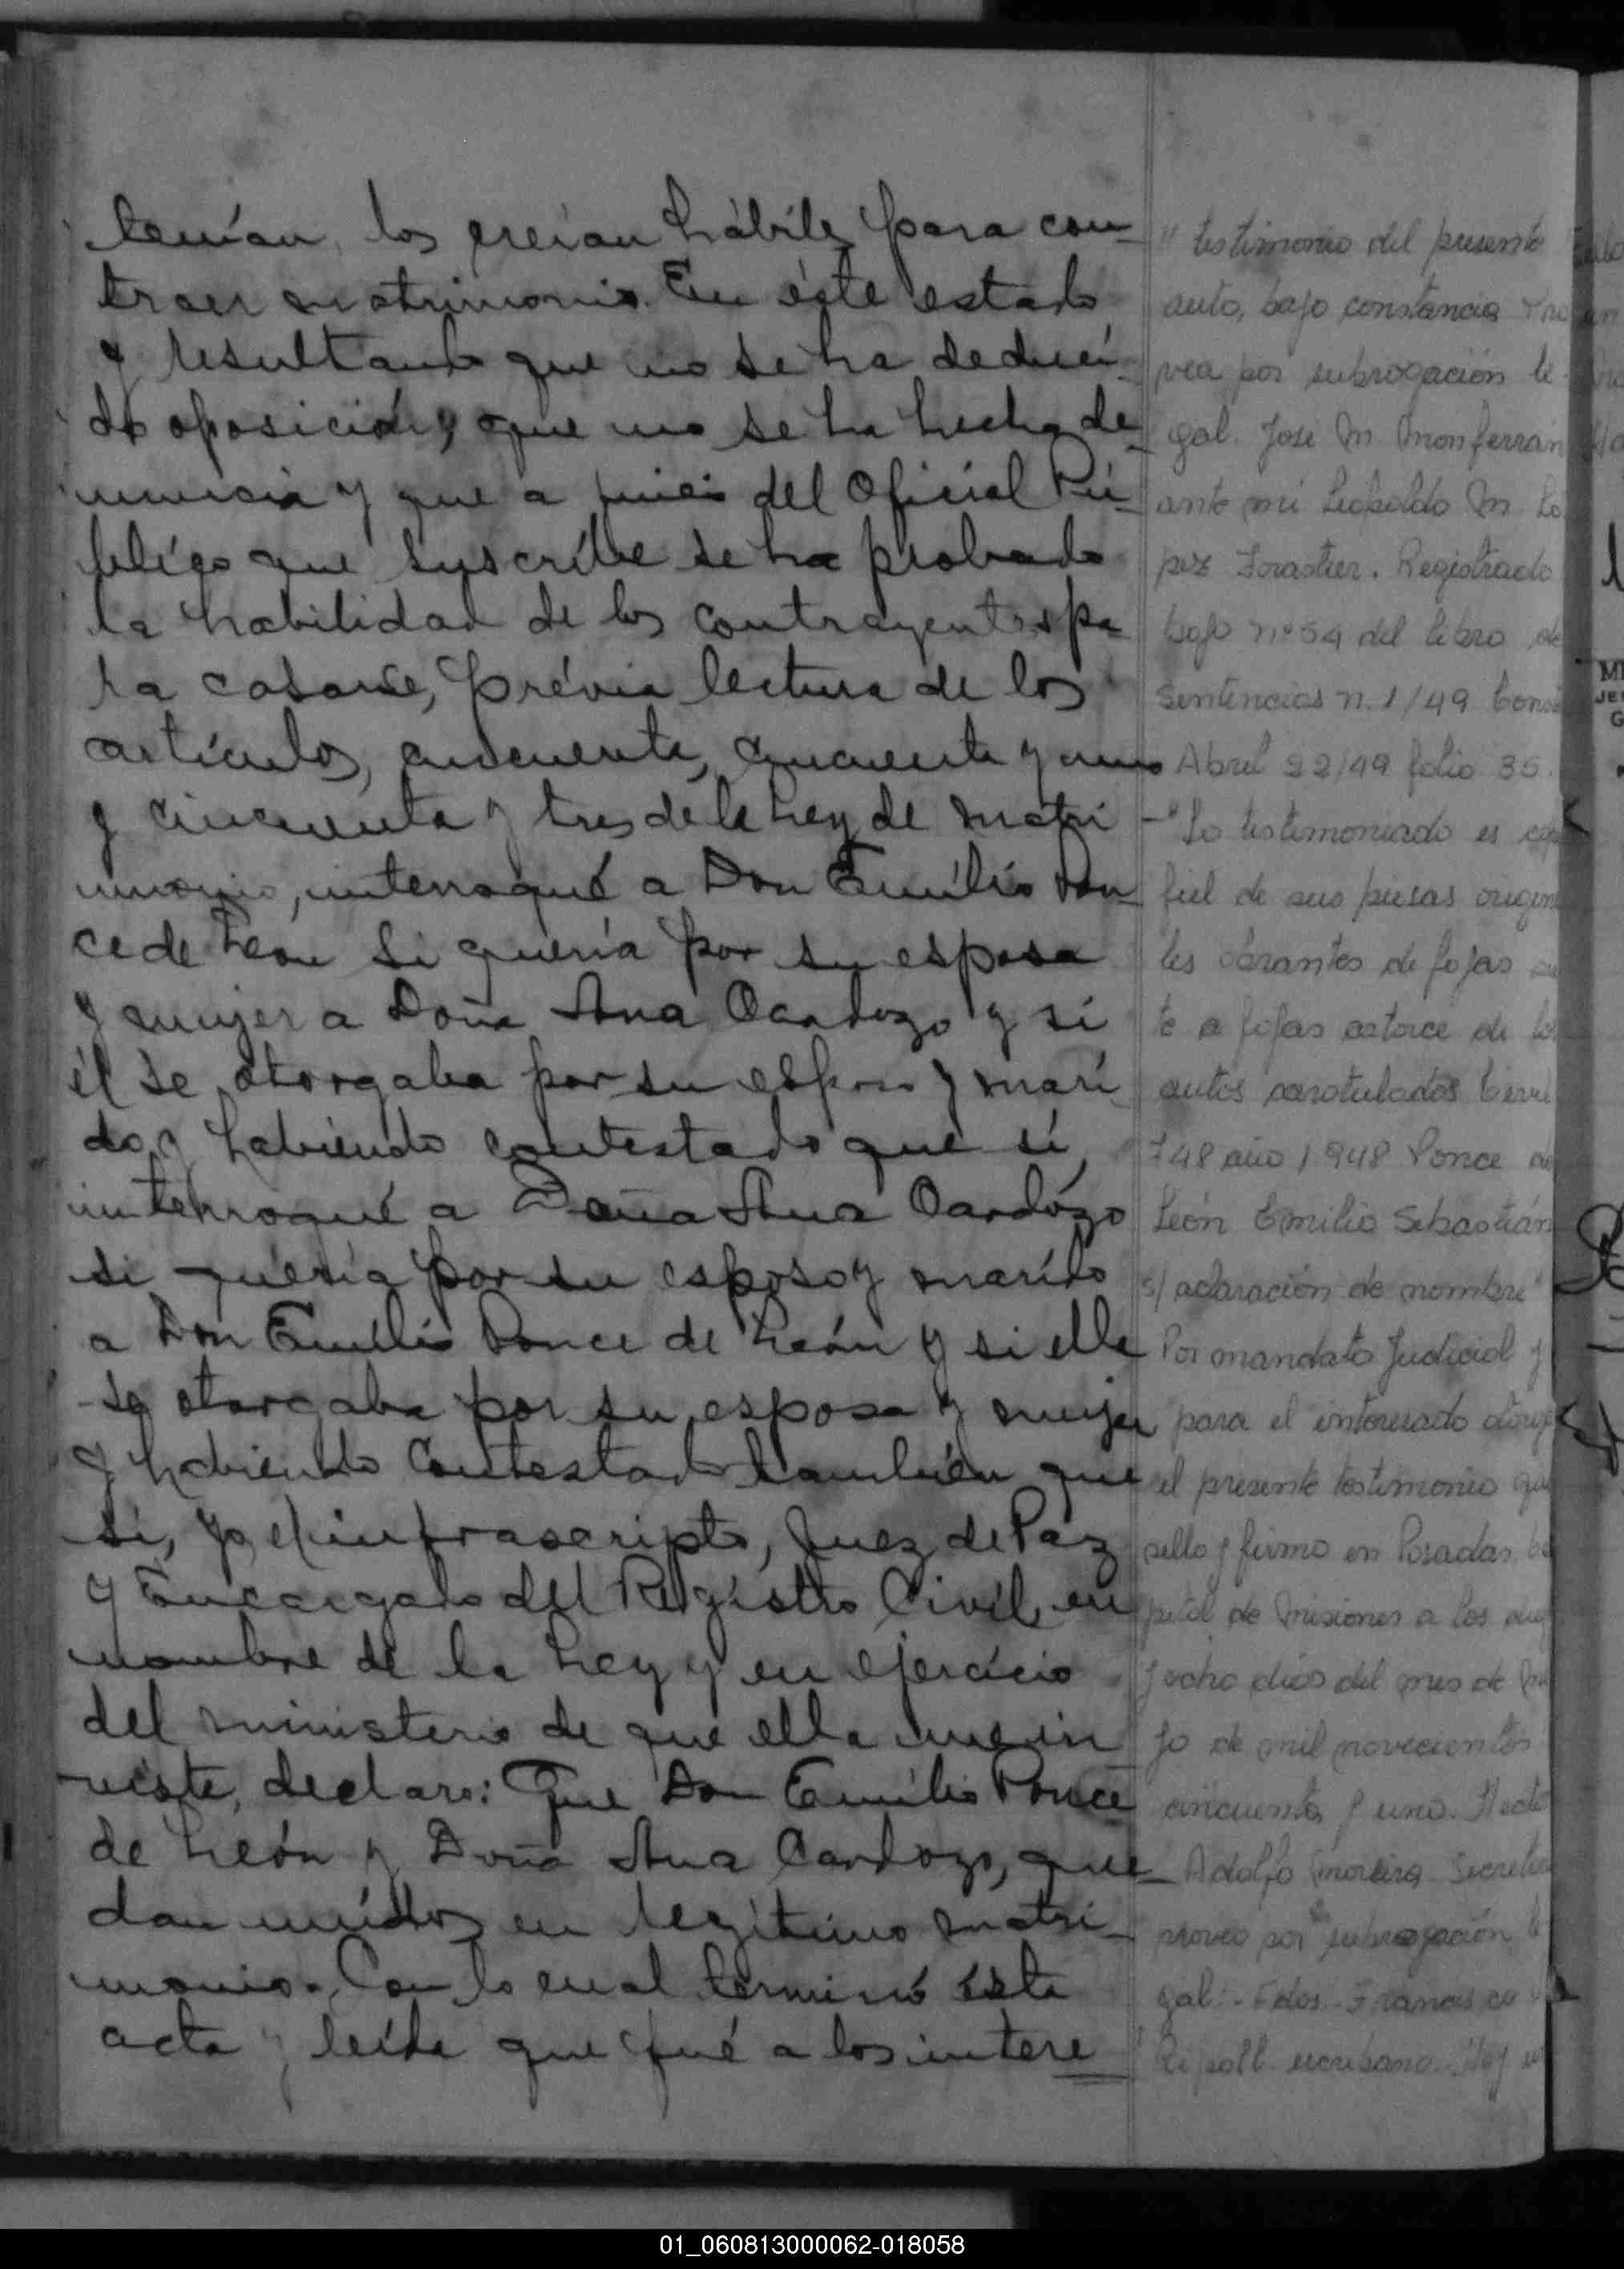 tenían, los creían hábiles para con-
traer matrimonio. En éste estado
y resultando que no se ha deduci-
do oposición y que no se ha hecho de-
nuncia y que a juicio del Oficial Pú-
blico que suscribe se ha probado
la habilidad de los contrayentes pa
ra casarse, prévia lectura de los
artículos, cincuenta, cincuenta y uno
y cincuenta y tres de la Ley de matri
monio, interrogué a Don Emilio Pon-
ce de Leon si quería por su esposa
y mujer a Doña Ana Cardozo y si
él se otorgaba por su esposo y mari
do y habiendo contestado que sí,
interrogué a Doña Ana Cardózo
si quería por su esposo y marido
a Don Emilio Ponce de León y si ella
se otorgaba por su esposa y mujer
y habiendo contestado también que
sí, yo, el infrascripto, Juez de Paz
y Encargado del Registro Civil, en
nombre de la Ley y en ejercicio
del ministerio de que ella me in
viste, declaro: Que Don Emilio Ponce
de León y Doña Ana Cardozo, que-
dan unidos en legítimo matri-
monio. Con lo cual terminó ésta
acta y leída que fué a los intere
" testimonio del presente
auto, bajo constancia
vea por subrogación le
gal. José M. Monferran
ante mi Leopoldo M. Lo
pez Forastier. Registrado
bajo nº 54 del libro de
Sentencias n. 1/49
Abril 22/49 folio 35.
-"Lo testimoniado es
fiel de sus piesas
les obrantes de fojas
te a fojas catorce de
autos caratulados
748 año 1948 Ponce de
León Emilio Sebastián
s/ aclaración de nombre"
Por mandato Judicial y
para el interesado
el presente testimonio que
sello y firmo en Posadas,
pital de Misiones a los
y ocho días del mes de
yo de mil novecientos
cincuenta y uno.
Adolfo Moreira Secretario
por subrogación le
gal.- Fdos.
Ripoll escribano.
01_060813000062-018058